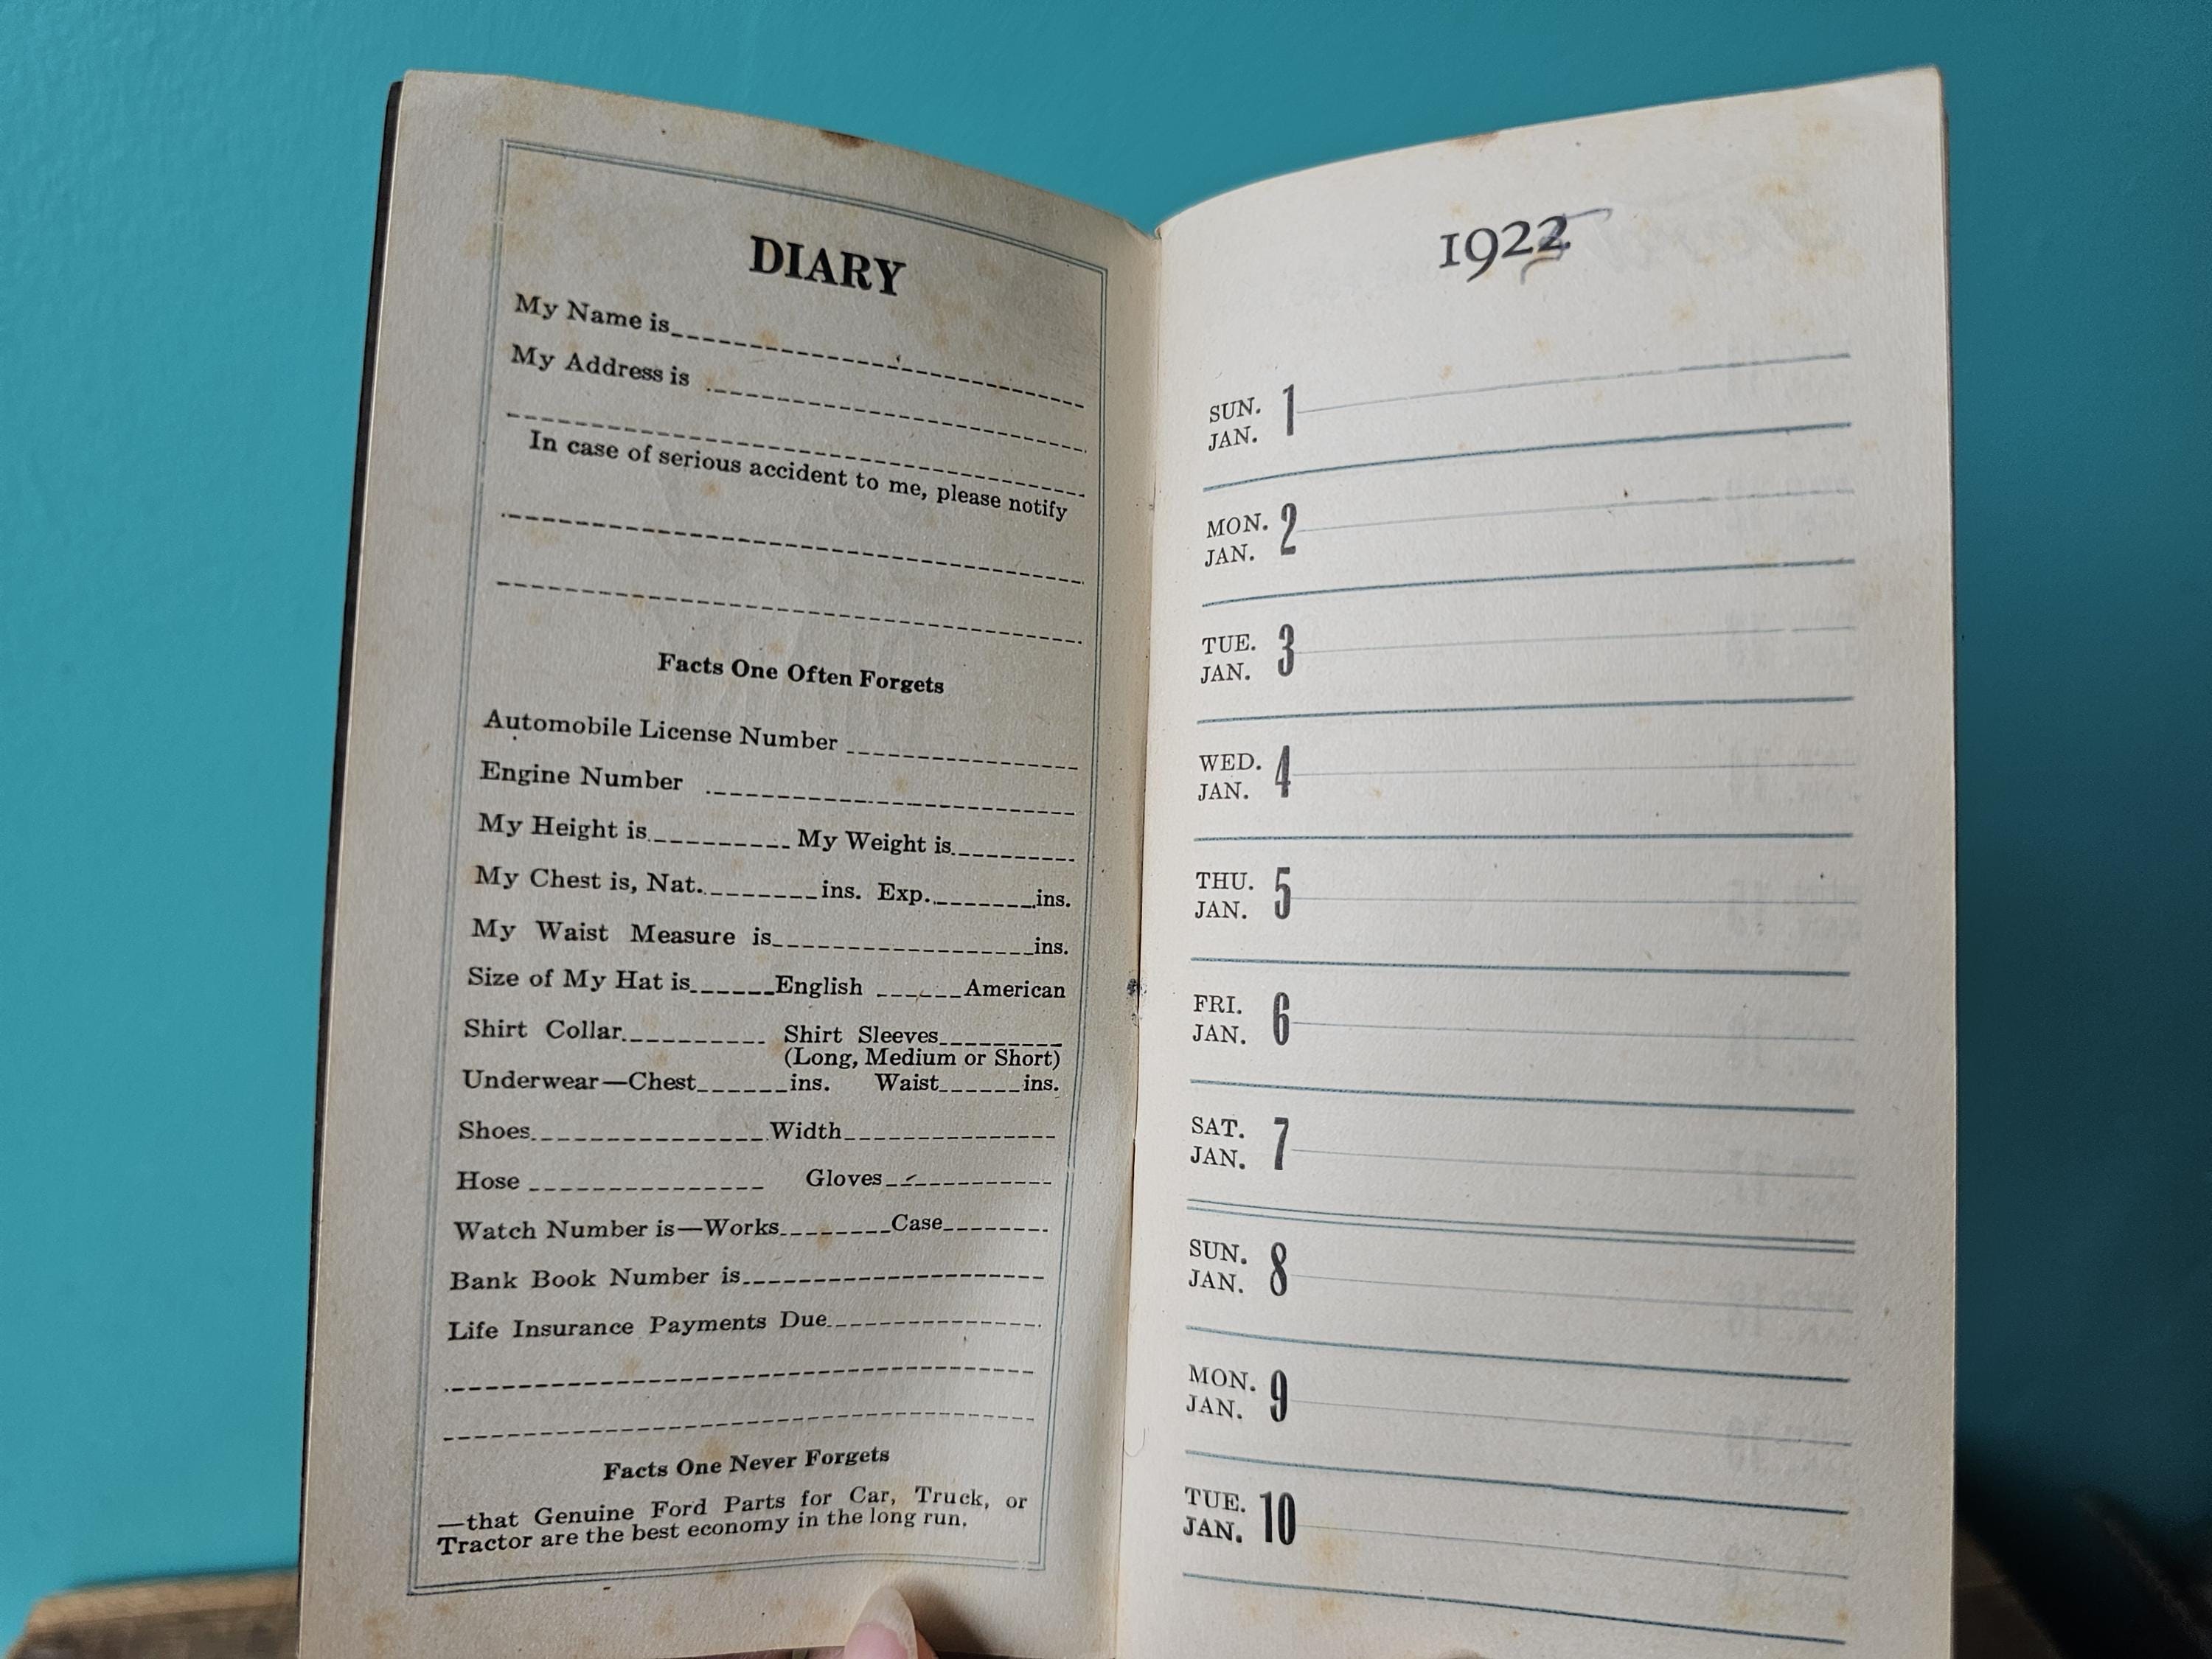 DIARY
My Name is
My Address is
In case of serious accident to me, please notify
Facts One Often Forgets
Automobile License Number
Engine Number
My Height is My Weight is
My Chest is, Nat. ins. Exp. ins.
My Waist Measure is ins.
Size of My Hat is English American
Shirt Collar Shirt Sleeves
(Long, Medium or Short)
Underwear—Chest ins. Waist ins.
Shoes Width
Hose Gloves
Watch Number is—Works Case
Bank Book Number is
Life Insurance Payments Due
Facts One Never Forgets
—that Genuine Ford Parts for Car, Truck, or
Tractor are the best economy in the long run.
1922
SUN. 1
JAN.
MON. 2
JAN.
TUE. 3
JAN.
WED. 4
JAN.
THU. 5
JAN.
FRI. 6
JAN.
SAT. 7
JAN.
SUN. 8
JAN.
MON. 9
JAN.
TUE. 10
JAN.